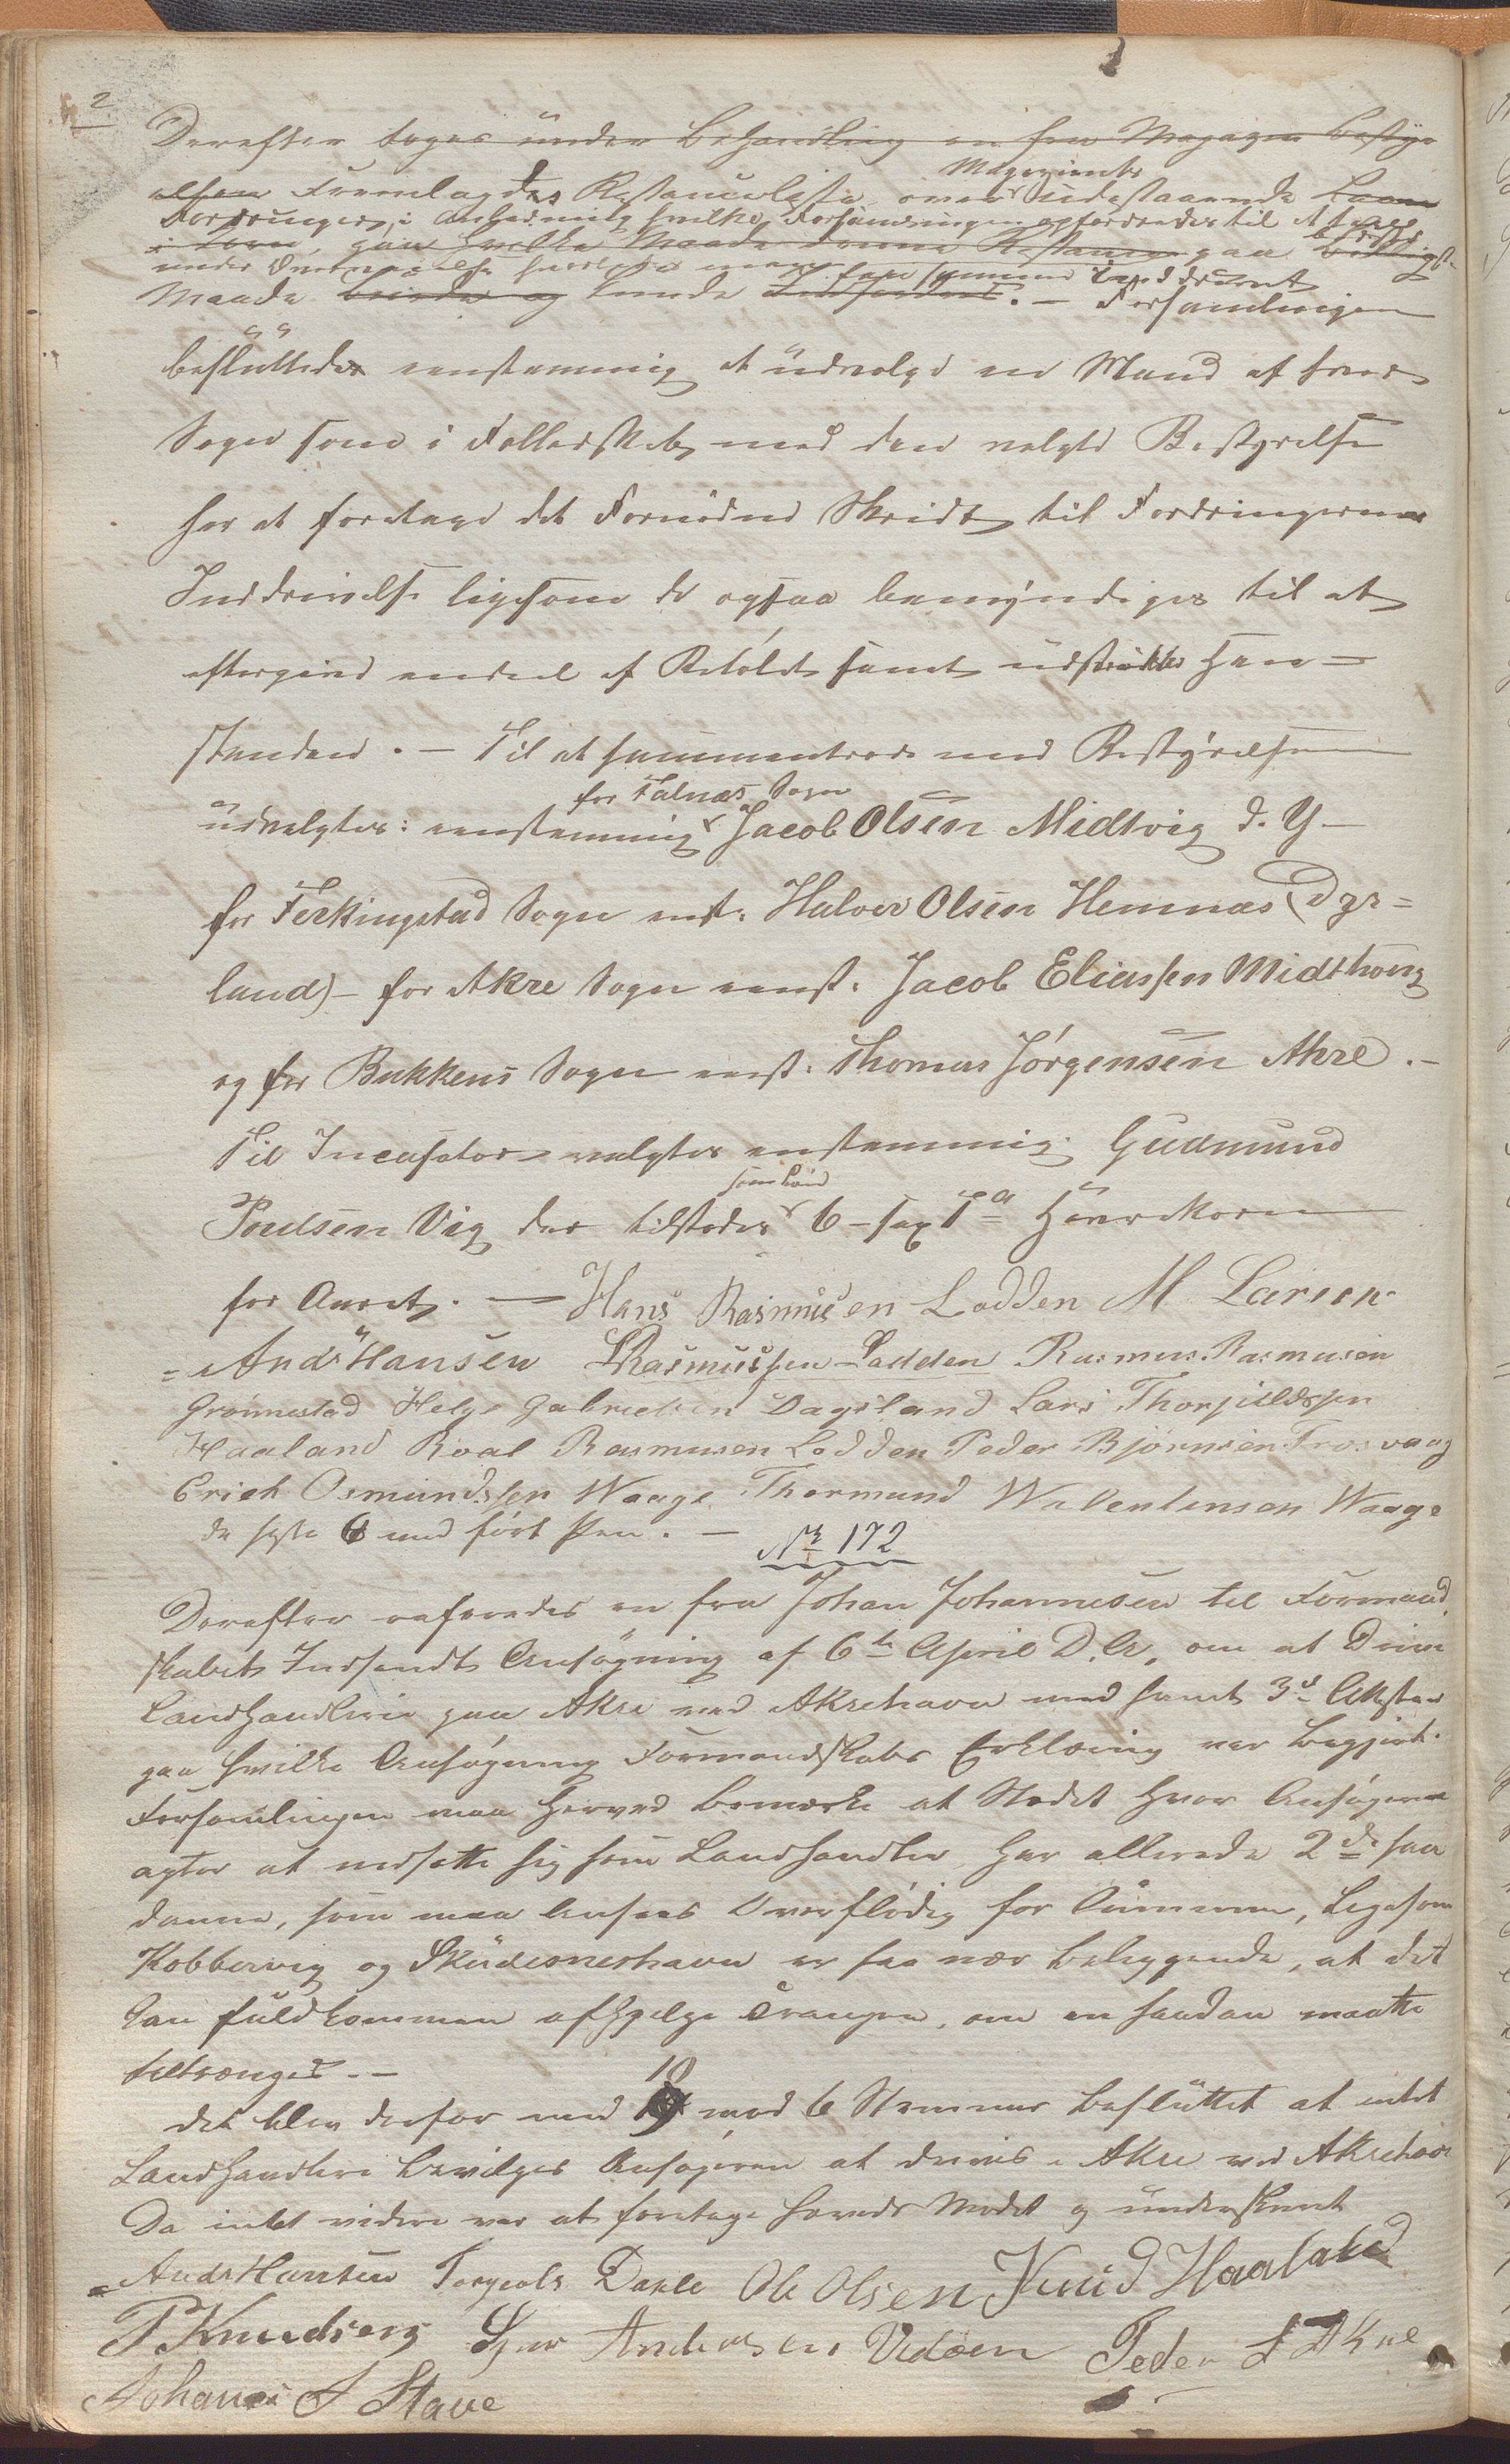 2
Derefter toges under Behandling en fra Magazin Besty-
relsen Fremlagdes Restanceliste over Magazinets udestaaende Laane
Fordringer, i Anledning hvilke Forsamlingen opfordredes til at
paa hvilke Maade denne Restance paa
Maade kunde inddrevet. – Forsamlingen
besluttede eenstemmig at udvælge en Mand af hver
Sogn som i Fælledskab med den valgte Bestyrelse
har at foretage det Fornødne Skridt til Fordringernes
Inddrivelse ligesom de ogsaa bemyndiges til at
eftergive endeel af Beløbet samt udstrække Hen-
standen. – Til at sammentræde med Bestyrelsen
udvalgtes: eenstemmig for Falnæs Sogn Jacob Olsen Midtvig d. Y –
for Ferkingstad Sogn enst. Halvor Olsen Hemnæs (Dyr-
land) – for Akre Sogn eenst. Jacob Eliassen Midthong
og for Bukkens Sogn enst. Thomas Jørgensen Akre. –
Til Incassator valgtes enstemmig Gudmund
Poulsen Vig der tilstodes som Løn 6 – sex Tdr Havrekorn
for Aaret. — Hans Rasmusen Lodden M Larsen
Ands Hansen Rasmussen Ladden Rasmus Rasmusen
Grønnestad Helge Gabrielsen Dagsland Lars Thorgildssen
Haaland Roal Rasmusen Lodden Peder Bjørnsen Trosvaag
Erick Osmundssen Waage Thormund Wallentinsen Waage
de siste 6 med ført Pen. –
№ 172
Derefter refereredes en fra Johan Johannesen til Formand-
skabet Indsendt Ansøgning af 6te April D.A. om at Drive
Landhandleri paa Akre ved Akrehavn med samt 3de Attester
paa hvilke Ansøgning Formandskabs Erklæring var Begjært.
Forsamlingen maa herved bemærke at Stedet hvor Ansøgeren
agter at nedsætte sig som Landhandler har allerede 2de saa
danne, som maa Ansees Overflødig for Almuen, Ligesom
Kobbervig og Skudesneshavn er saa nær beliggende, at det
kan fuldkommen afhjelpe Trangen, om en saadan maatte
tiltrænges. –
Det blev derfor med 10 mod 6 Stemmer besluttet at intet
Landhandleri bevilges Ansøgeren at drives i Akre ved Akrehavn
Da intet videre var at foretage hævedes Mødet og underskrevet
Ands Hansen Torgeols Dahle Ole Olsen Knud Haaland
P Knudsen Sjur Andersen Vedøen Peder L Akre
Johanes J Stave